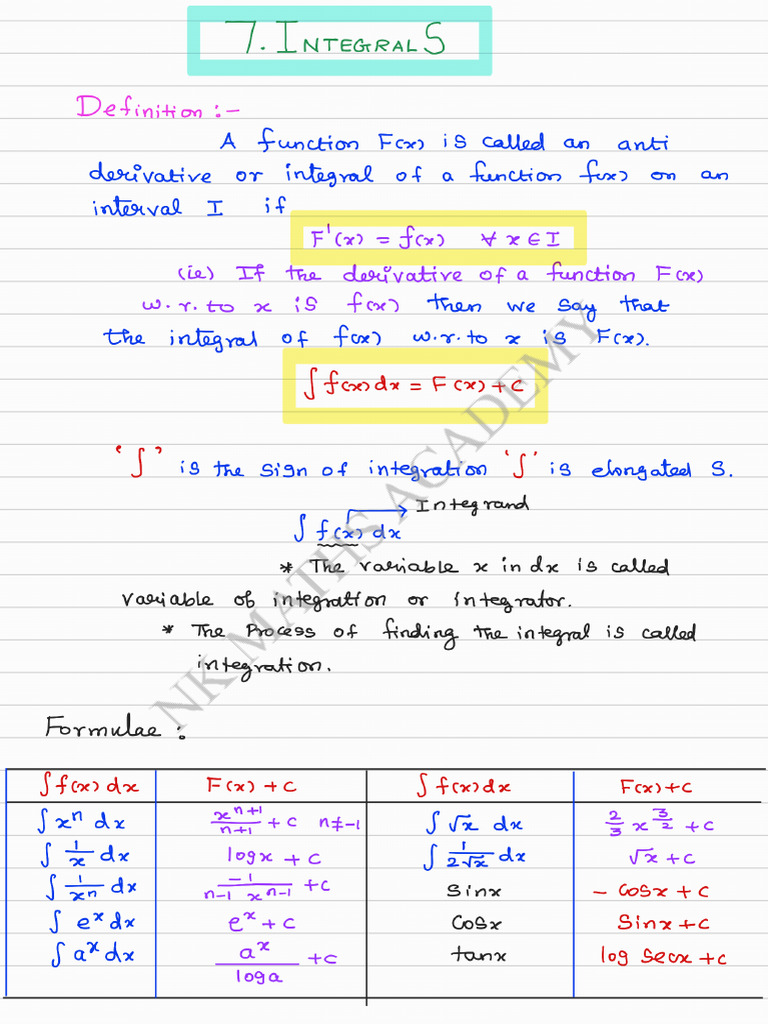 7. INTEGRALS
Definition :-
A function F(x) is called an anti
derivative or integral of a function f(x) on an
interval I if
F'(x) = f(x) ∀ x ∈ I
(ie) If the derivative of a function F(x)
w.r.to x is f(x) then we say that
the integral of f(x) w.r.to x is F(x).
∫ f(x) dx = F(x) + c
'∫' is the sign of integration '∫' is elongated S.
Integrand
∫ f(x) dx
* The variable x in dx is called
variable of integration or integrator.
* The Process of finding the integral is called
integration.
NK MATHS ACADEMY
Formulae :
∫f(x) dx F(x) + c ∫ f(x) dx F(x) + c
∫ xⁿ dx xⁿ⁺¹/n+1 + c n≠-1 ∫ √x dx 2/3 x^3/2 + c
∫ 1/x dx logx + c ∫ 1/2√x dx √x + c
∫ 1/xⁿ dx -1/n-1 xⁿ⁻¹ + c Sinx - Cosx + c
∫ eˣ dx eˣ + c Cosx Sinx + c
∫ aˣ dx aˣ/loga + c tanx log Secx + c